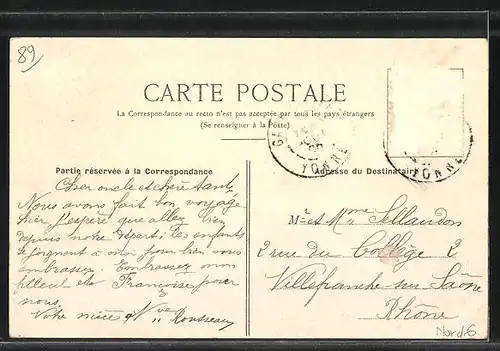 89
CARTE POSTALE
La Correspondance au recto n'est pas acceptée par tous les pays étrangers
(Se renseigner à la Poste)
YONNE
YONNE
Partie réservée à la Correspondance
Adresse du Destinataire
Cher oncle et chère tante,
Nous avons fait bon voyage
hier j'espère que allez bien
depuis notre départ; les enfants
se joignent à moi pour bien vous
embrasser. Embrassez mon
filleul et Françoise pour
nous.
Votre nièce Vve Rousseau
Mr et Mme Sellandon
2 rue du Collège 2
Villefranche-sur Saône
Rhône
Nord-6